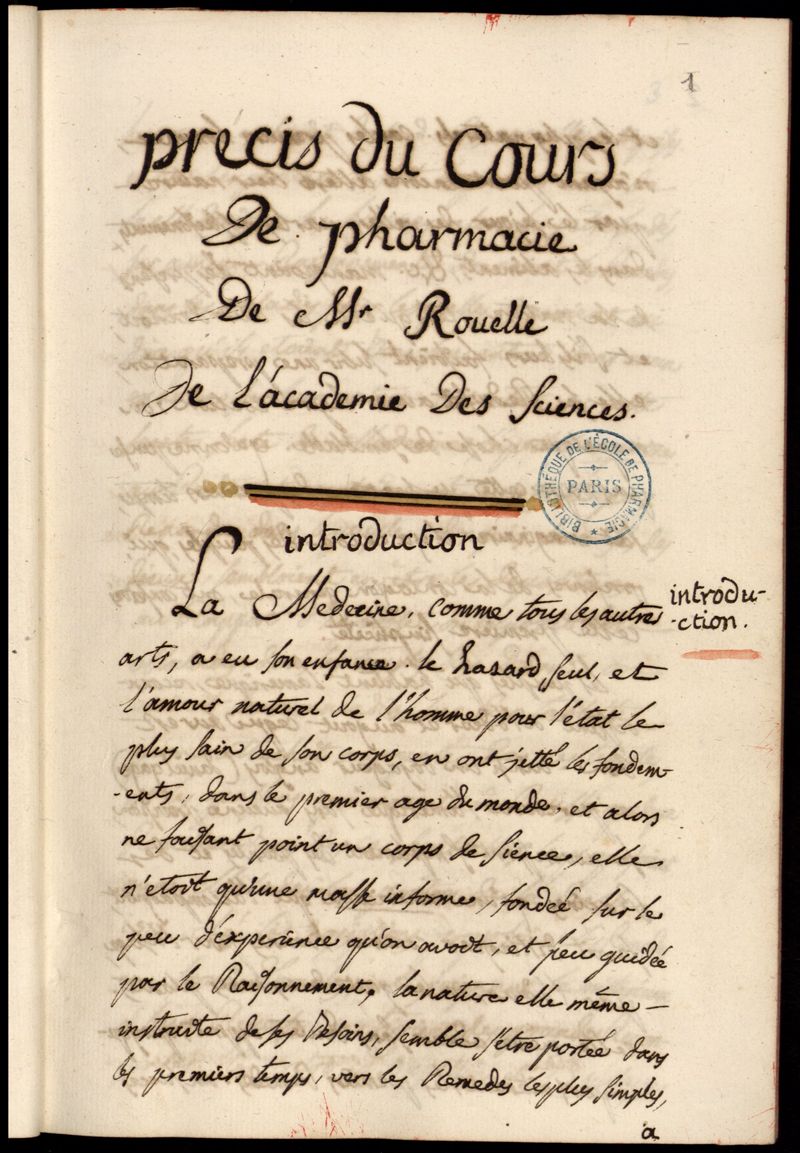 1
precis du Cours
De pharmacie
De Mr Rouelle
De l'academie Des Sciences.
BIBLIOTHÈQUE DE L'ÉCOLE DE PHARMACIE
PARIS
introduction
La Medecine, comme tous les autres
introdu-
-ction.
arts, a eu son enfance. le hazard seul, et
l'amour naturel de l'homme pour l'état le
plus sain de son corps, en ont jetté les fondem-
-ents, dans le premier age du monde, et alors
ne faisant point un corps de sience, elle
n'etoit qu'une masse informe, fondeé sur le
peu d'experience qu'on avoit, et peu guideé
par le Raisonnement, la nature elle même -
instruite de ses Besoins, semble s'etre porteé dans
les premiers temps, vers les Remedes les plus simples,
a